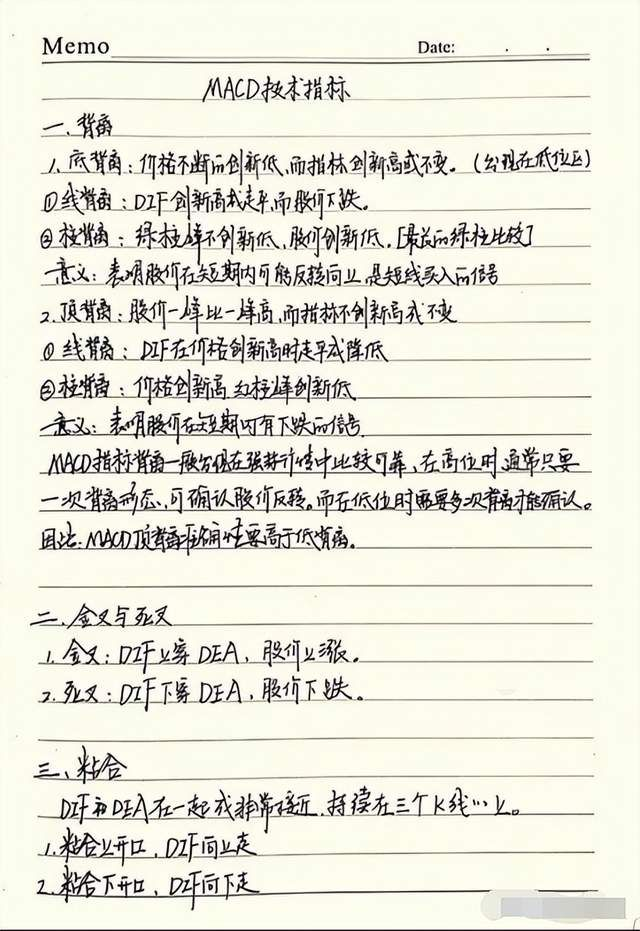 Memo Date: . .
MACD技术指标
一.背离
1.底背离:价格不断的创新低,而指标创新高或不变。(出现在低位区)
①线背离:DIF创新高或走平,而股价下跌。
②柱背离:绿柱峰不创新低,股价创新低.[最前的绿柱比较]
意义:表明股价在短期内可能反转向上,是短线买入的信号
2.顶背离:股价一峰比一峰高,而指标不创新高或不变
①线背离:DIF在价格创新高时走平或降低
②柱背离:价格创新高,红柱峰创新低
意义:表明股价在短期内有下跌的信号.
MACD指标背离一般出现在强势行情中比较可靠,在高位时通常只要
一次背离形态,可确认股价反转。而在低位时需要多次背离才能确认。
因此:MACD顶背离准确性要高于低背离。
二.金叉与死叉
1.金叉:DIF上穿DEA,股价上涨。
2.死叉:DIF下穿DEA,股价下跌。
三、粘合
DIF和DEA在一起或非常接近,持续在三个K线以上。
1.粘合上开口,DIF向上走
2.粘合下开口,DIF向下走